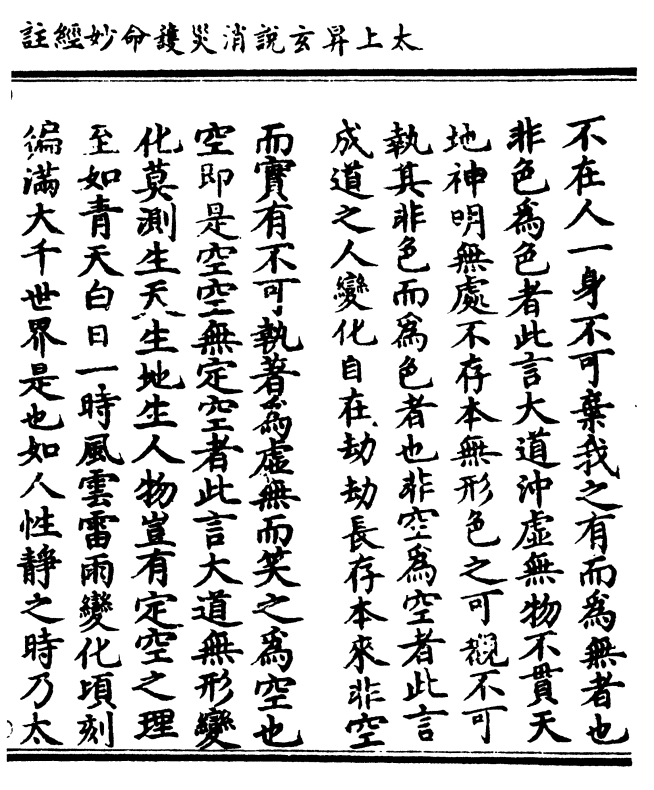 太上昇玄說消災護命妙經註
不在人一身不可棄我之有而爲無者也
非色爲色者此言大道沖虛無物不貫天
地神明無處不存本無形色之可觀不可
執其非色而爲色者也非空爲空者此言
成道之人變化自在劫劫長存本來非空
而實有不可執著爲虛無而笑之爲空也
空即是空空無定空者此言大道無形變
化莫測生天生地生人物豈有定空之理
至如青天白日一時風雲雷雨變化頃刻
徧滿大千世界是也如人性靜之時乃太